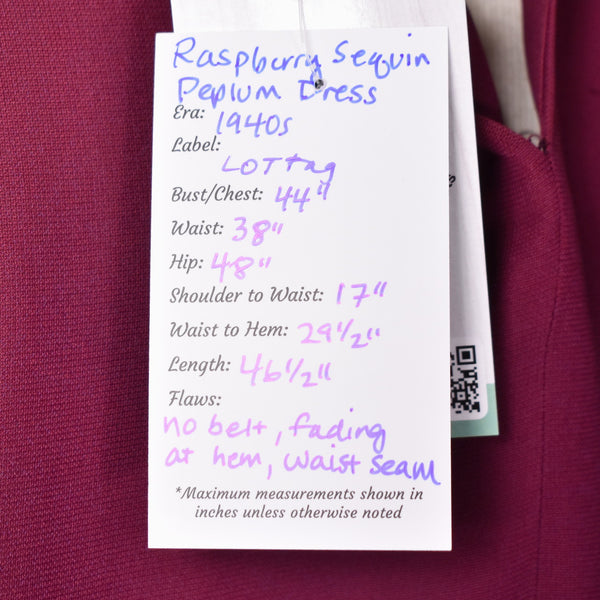 Raspburry Sequin
Peplum Dress
Era: 1940s
Label:
LOT tag
Bust/Chest: 44"
Waist: 38"
Hip: 48"
Shoulder to Waist: 17"
Waist to Hem: 29 1/2"
Length: 46 1/2"
Flaws:
no belt, fading
at hem, waist seam
*Maximum measurements shown in
inches unless otherwise noted